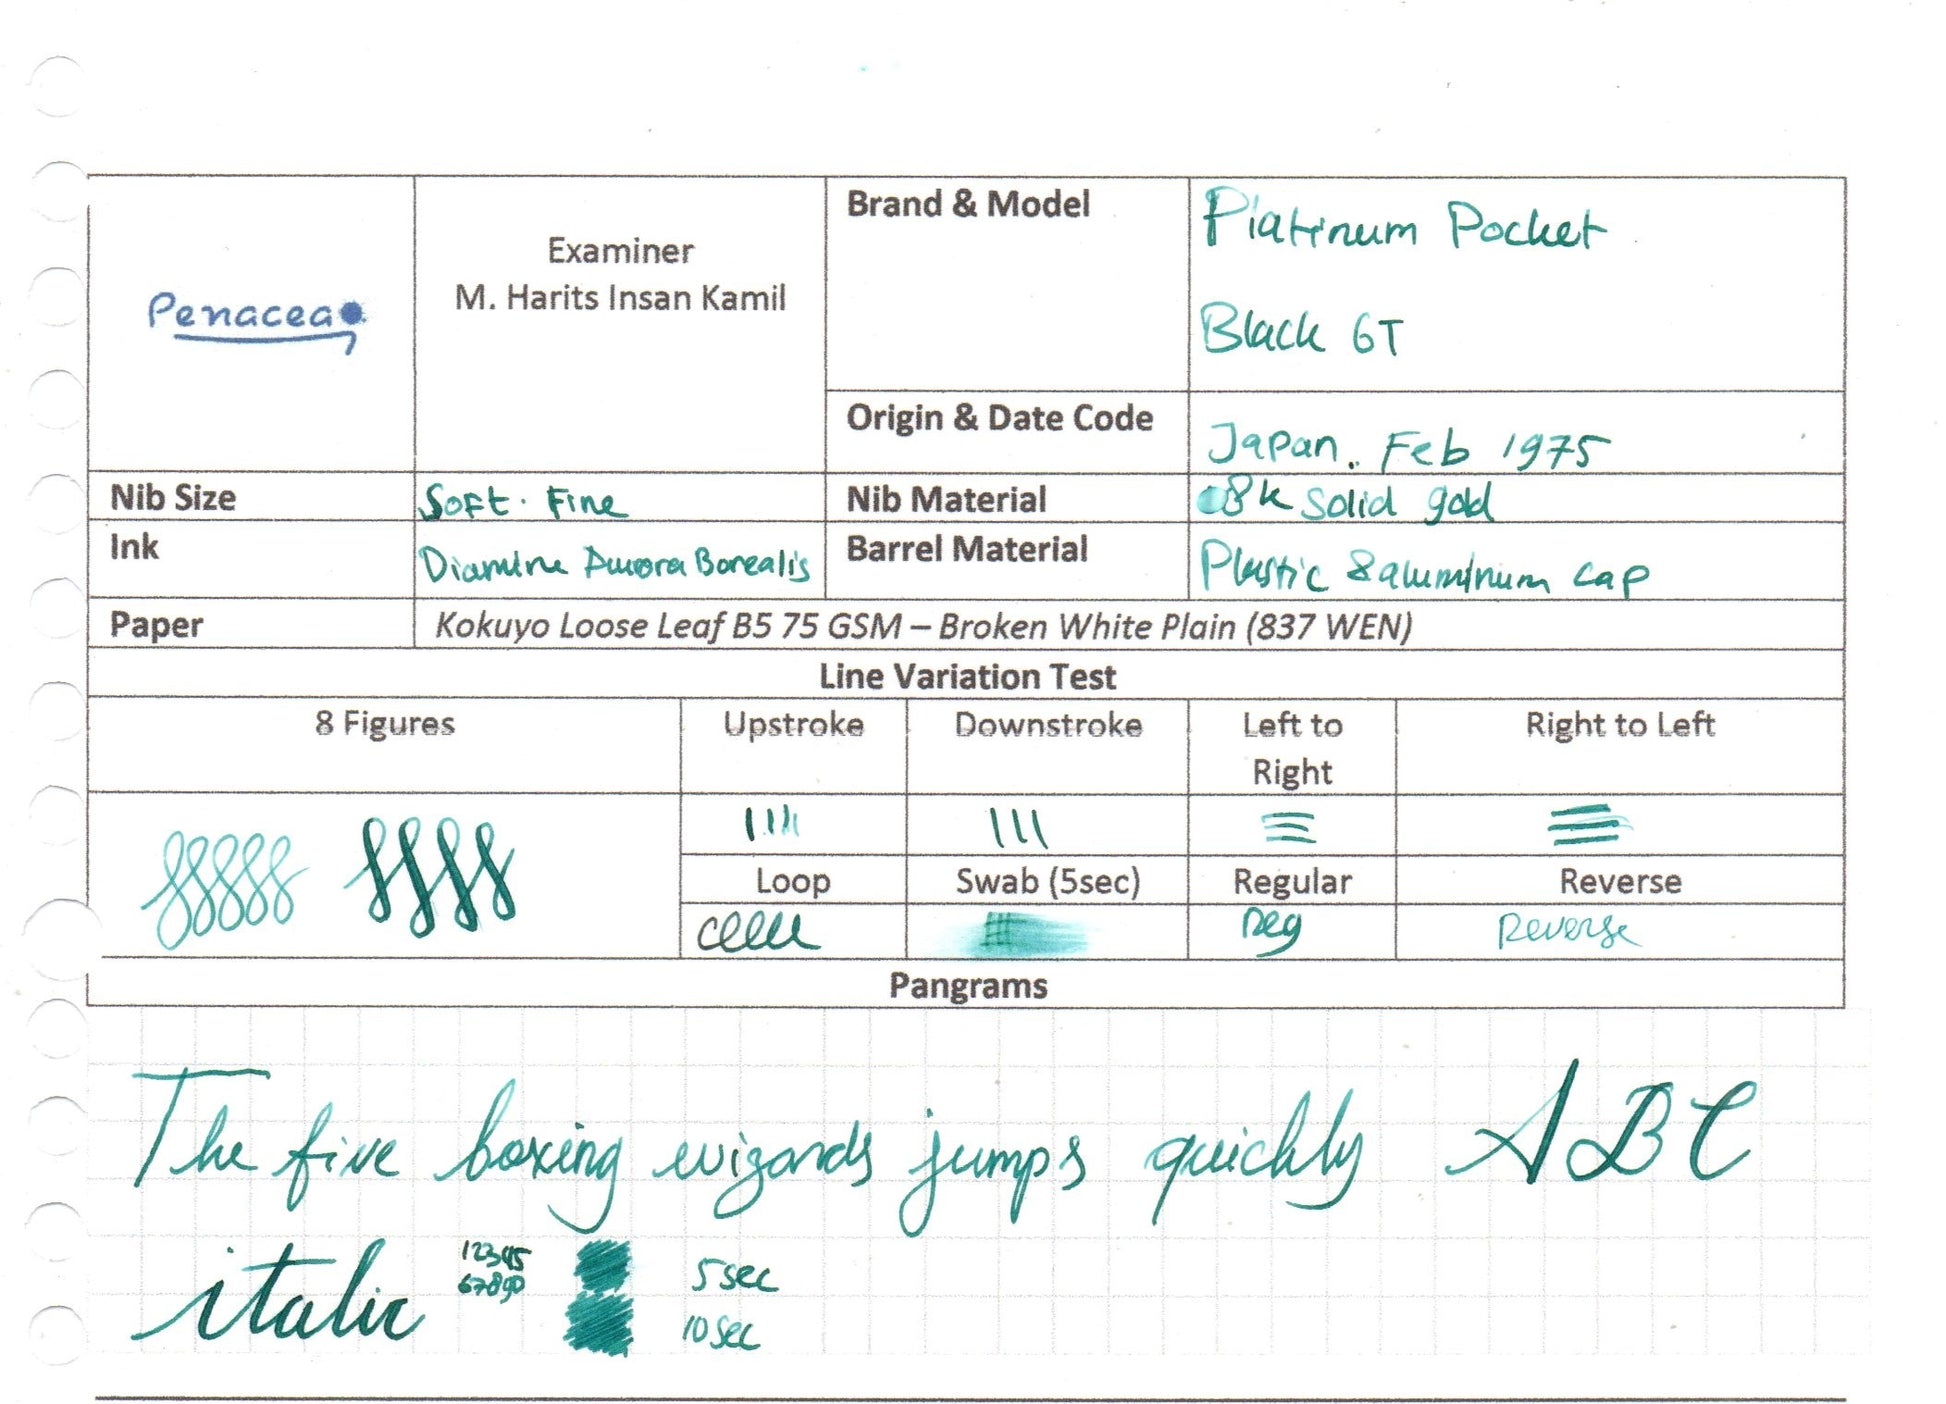 Penacea
Examiner
M. Harits Insan Kamil
Brand & Model
Platinum Pocket
Black GT
Origin & Date Code
Japan. Feb 1975
Nib Size
Soft. Fine
Nib Material
8k solid gold
Ink
Diamine Aurora Borealis
Barrel Material
Plastic & aluminum cap
Paper
Kokuyo Loose Leaf B5 75 GSM – Broken White Plain (837 WEN)
Line Variation Test
8 Figures
Upstroke
Downstroke
Left to
Right
Right to Left
Loop
Swab (5sec)
Regular
Reverse
Reg
Reverse
Pangrams
The five boxing wizards jumps quickly ABC
italic
12345
67890
5sec
10sec